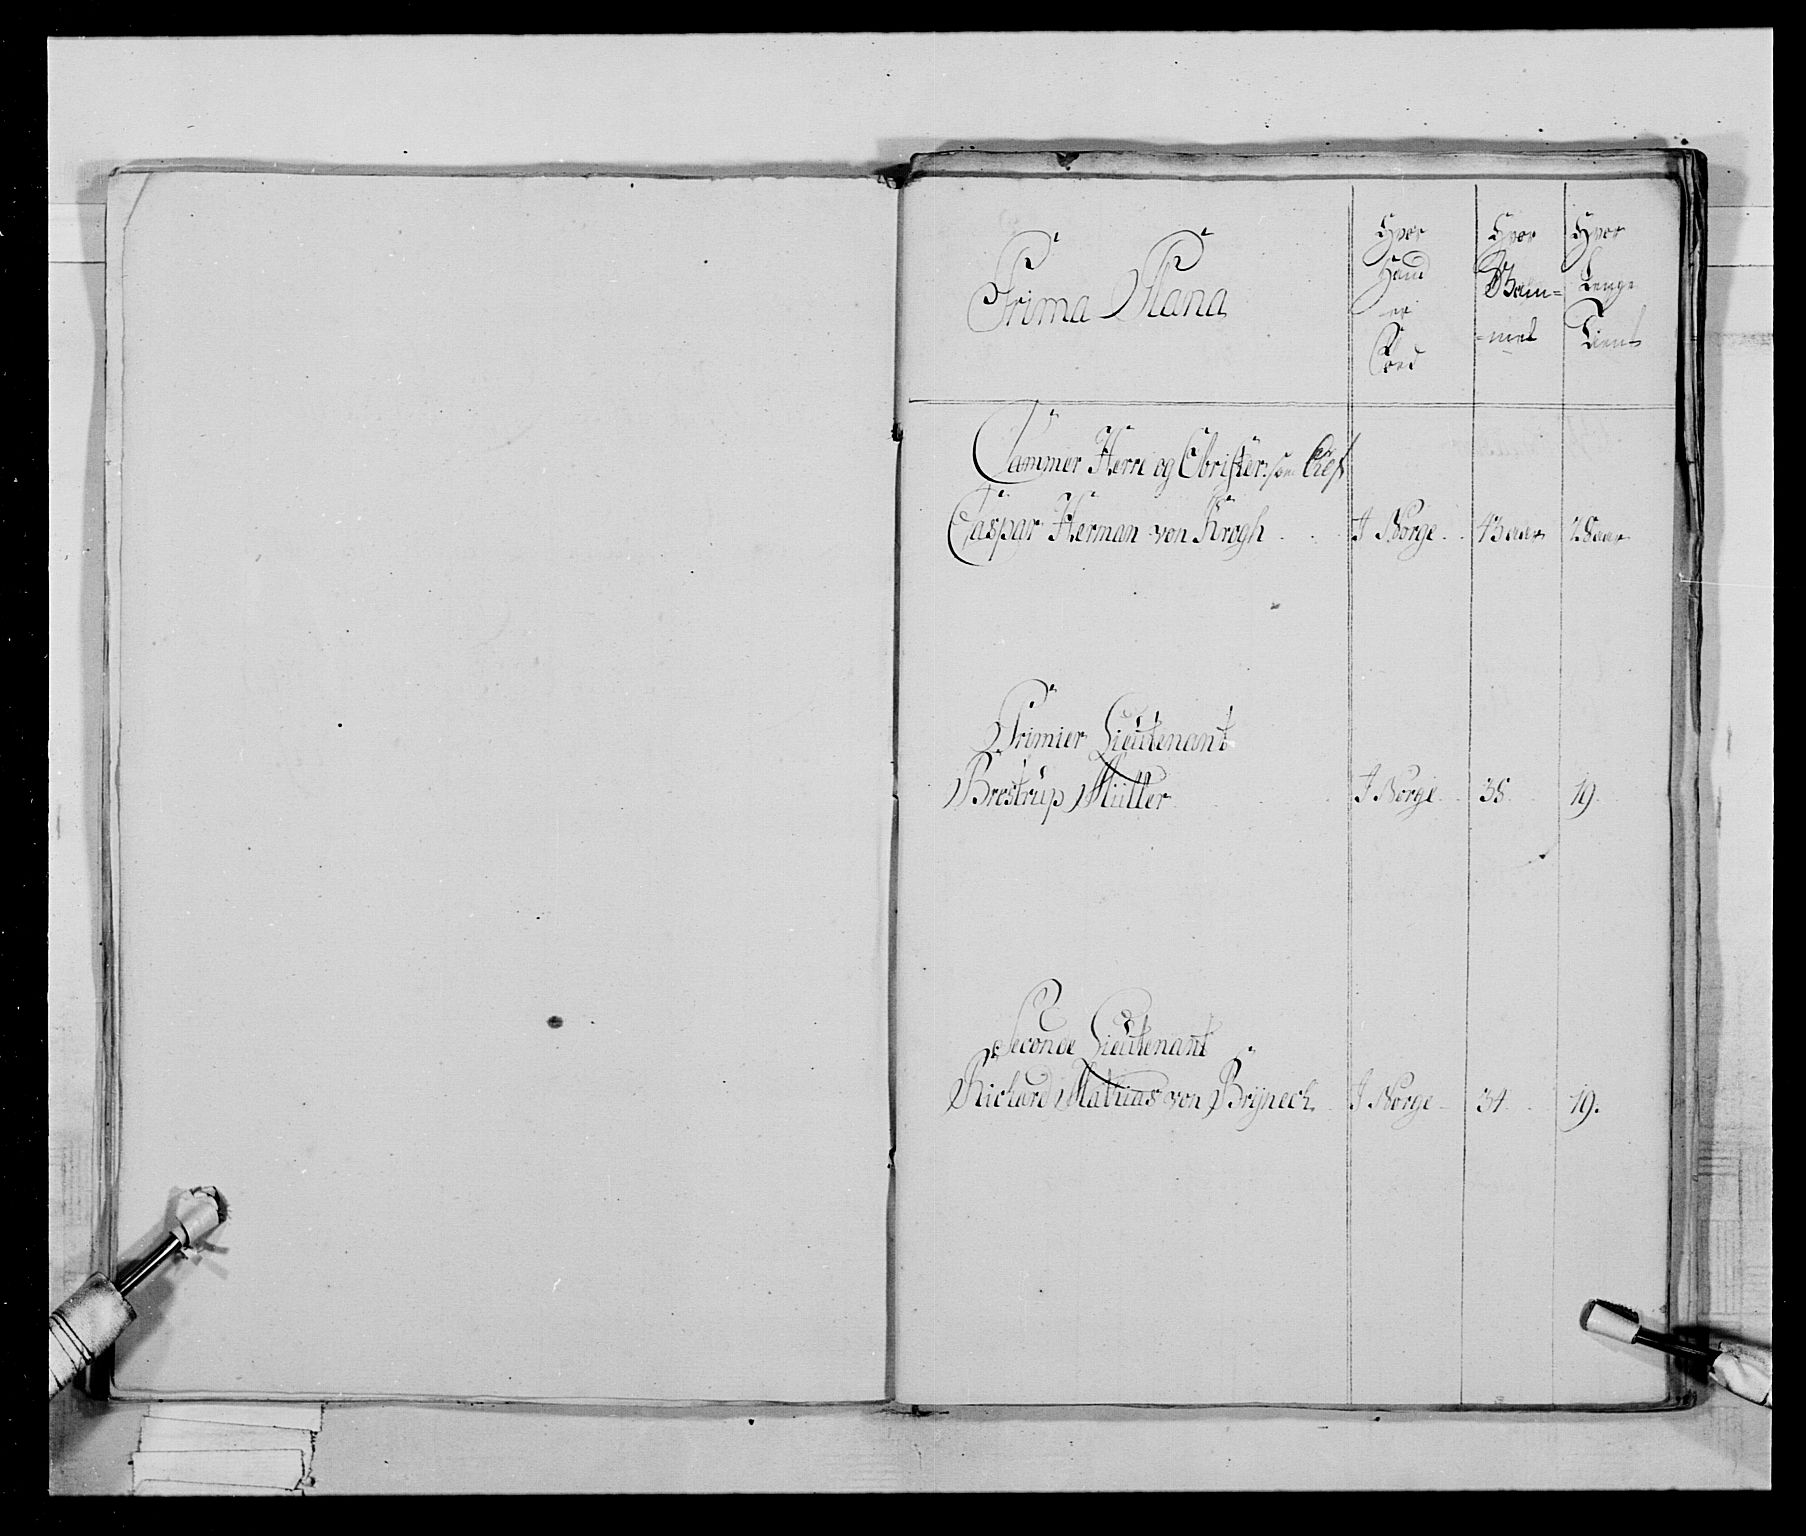 Prima Plana
Hvor Hand er Föed
Hvor Gam=
=mel
Hvor Lenge Tient
Cammer Herre og Obrister som Chef
Caspar Herman von Krogh . . . I Norge . . 43 aar 28 aar
Primier Lieutenant
Brostrup Müller I Norge 38 19.
Seconde Lieutenant
Richard Mathias von Brÿneck I Norge 34 19.